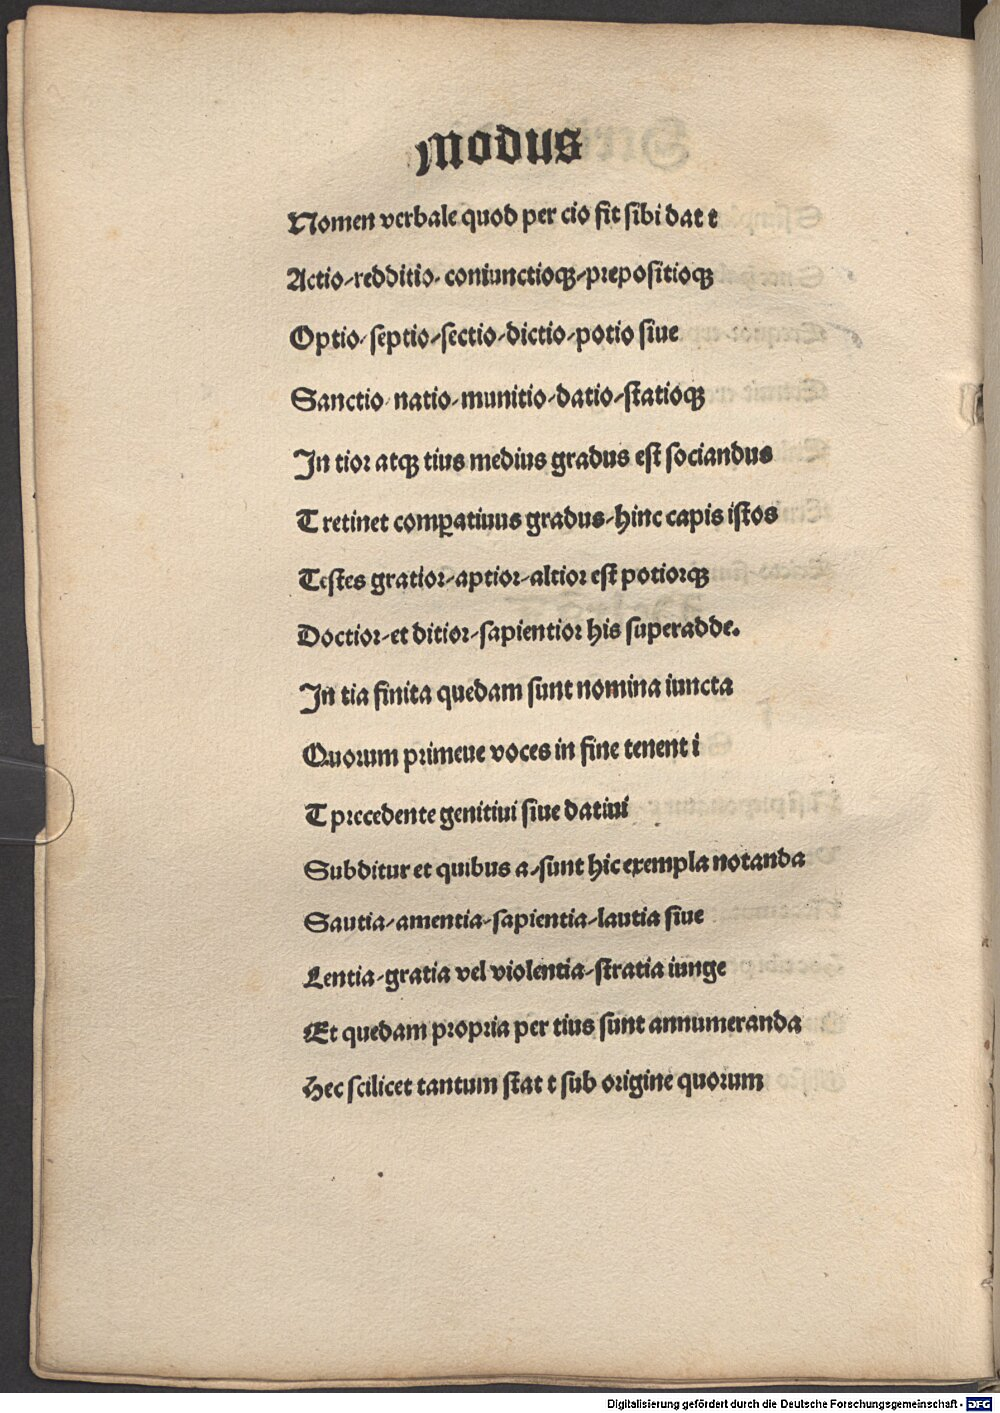 Modus
Nomen verbale quod per cio fit sibi dat t
Actio-redditio-coniunctioqȝ-prepositioqȝ
Optio-septio-sectio-dictio-potio siue
Sanctio-natio-munitio-datio-statioqȝ
In tior atqȝ tius medius gradus est sociandus
T retinet comꝑatiuus gradus-hinc capis istos
Testes gratior-aptior-altior est potiorqȝ
Doctior-et ditior-sapientior his superadde.
In tia finita quedam sunt nomina iuncta
Quorum primeue voces in fine tenent i
T precedente genitiui siue datiui
Subditur et quibus a-sunt hic exempla notanda
Sautia-amentia-sapientia-lautia siue
Lentia-gratia vel violentia-stratia iunge
Et quedam propria per tius sunt annumeranda
Hec scilicet tantum stat t sub origine quorum
Digitalisierung gefördert durch die Deutsche Forschungsgemeinschaft - DFG